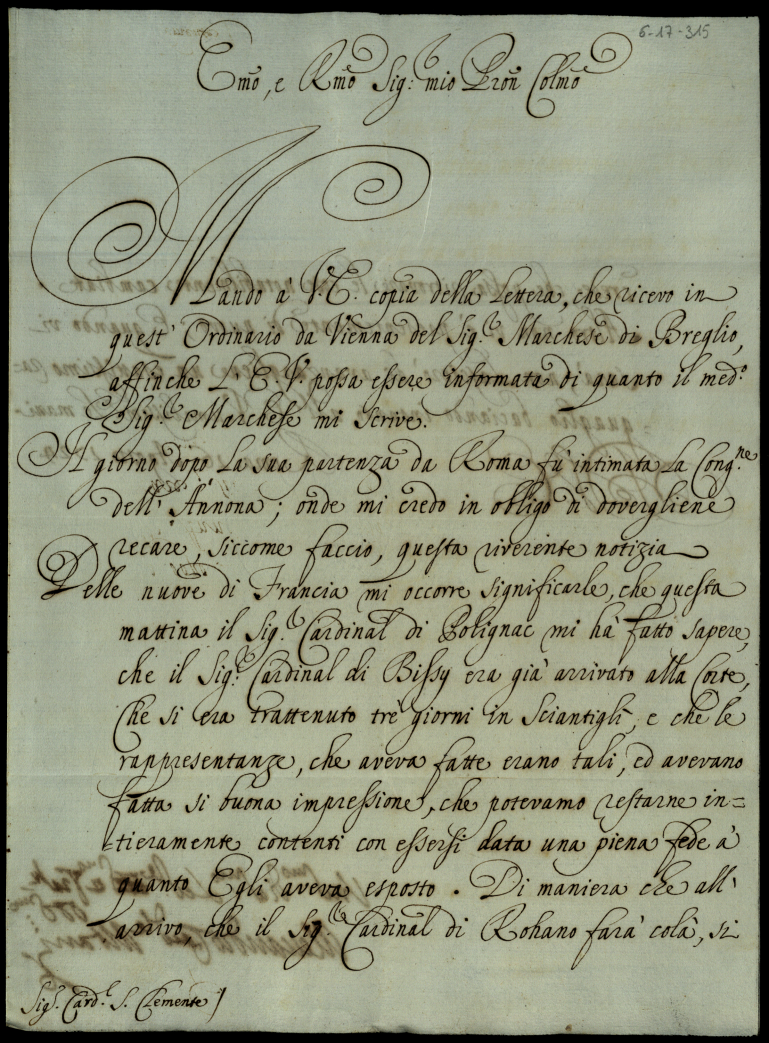 6-17-315
Emo, e Rmo Sig: mio Pron Colmo
Mando à V. E. copia della Lettera, che ricevo in
quest' Ordinario da Vienna del Sig.r Marchese di Breglio,
affinche L' E. V. possa essere informata di quanto il med.o
Sig.r Marchese mi scrive.
Il giorno dopo La sua partenza da Roma fù intimata La Cong.ne
dell' Annona; onde mi credo in obligo di dovergliene
recare, siccome faccio, questa riverente notizia
Delle nuove di Francia mi occorre significarle, che questa
mattina il Sig.r Cardinal di Polignac mi hà fatto sapere,
che il Sig.r Cardinal di Bissy era già arrivato alla Corte,
Che si era trattenuto trè giorni in Sciantiglì, e che le
rappresentanze, che aveva fatte erano tali, ed avevano
fatta si buona impressione, che potevamo restarne in=
=tieramente contenti con essersi data una piena fede à
quanto Egli aveva esposto. Di maniera che all'
arrivo, che il Sig.r Cardinal di Rohano farà colà, si
Sig.r Card.l S. Clemente